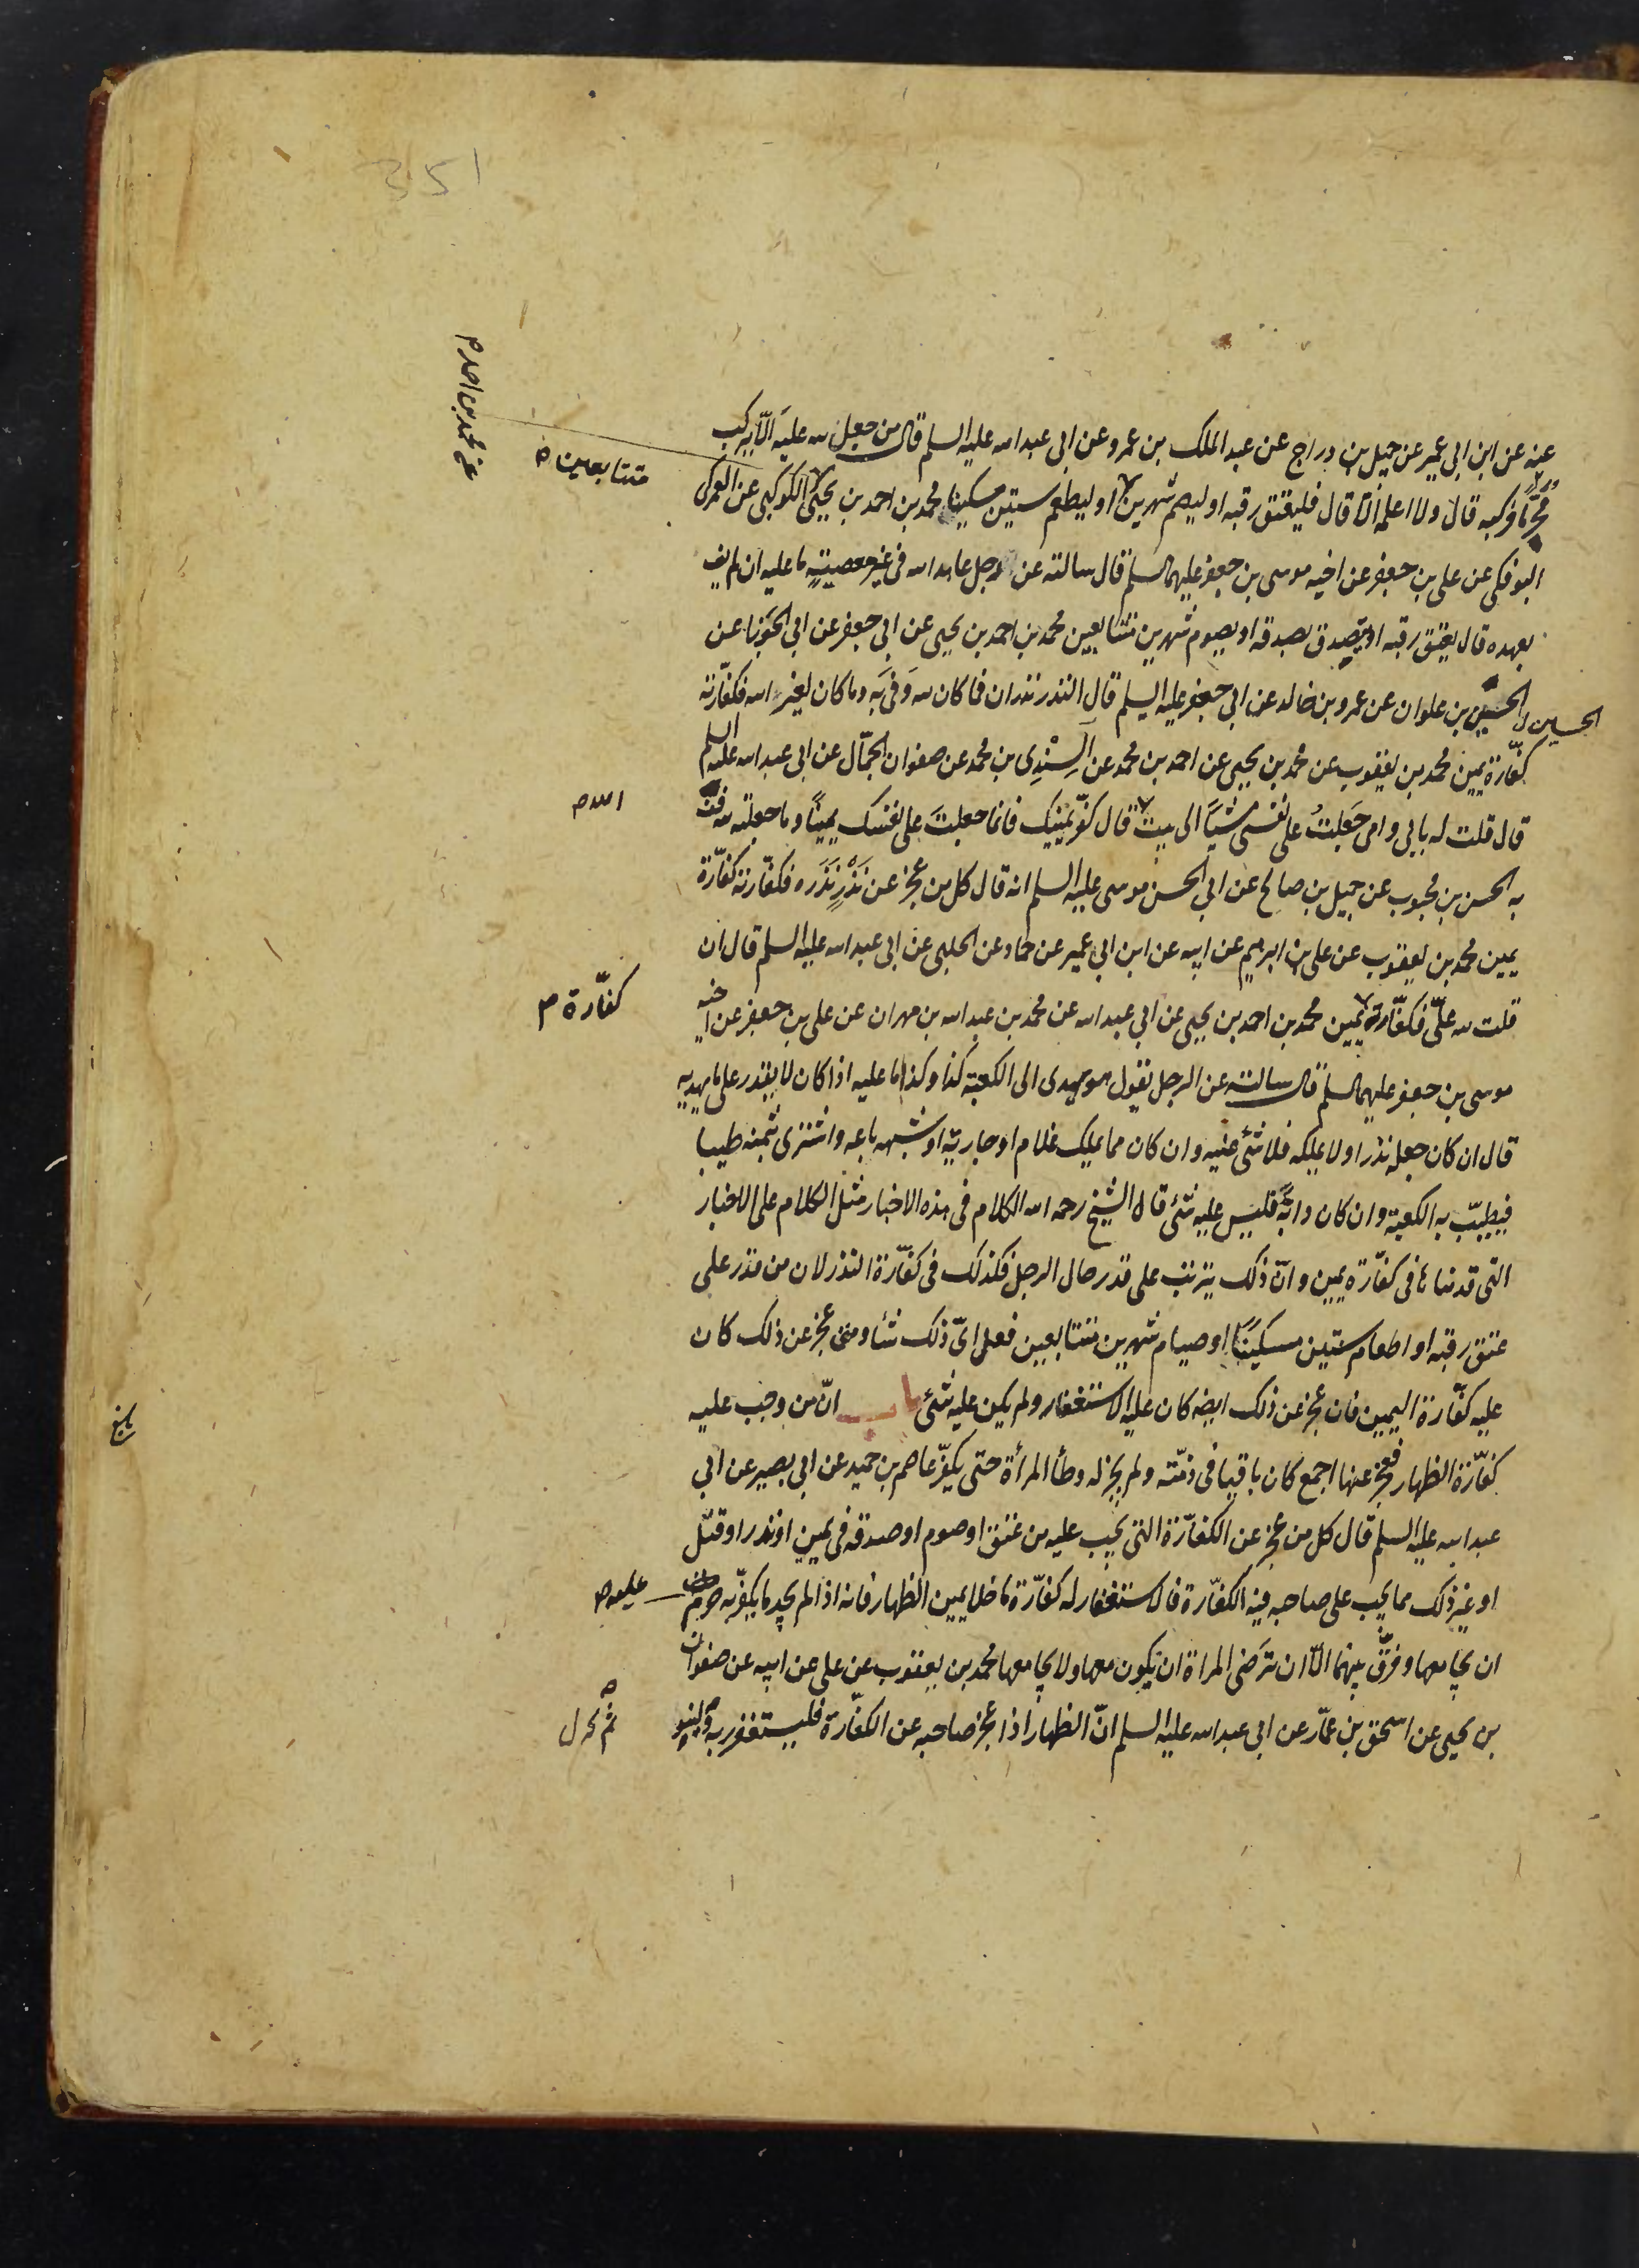 351
عنه عن ابن ابي عمير عن جميل بن دراج عن عبد الملك بن عمرو عن ابي عبد الله عليه السلم قال من جعل لله عليه الّا يركب
محرّما فركبه قال ولا اعلمه الّا قال فليعتق رقبه او ليصم شهرين او ليطعم ستين مسكينا محمد بن احمد بن يحيى الكوكبي عن العمركي
متتابعين ص
عن محمد بن احمد م
البوفكي عن علي بن جعفر عن اخيه موسى بن جعفر عليهما السلم قال سالته عن رجل عاهد الله في غير معصيةٍ ما عليه ان لم يف
بعهده قال يعتق رقبه او يتصدق بصدقه او يصوم شهرين متتابعين محمد بن احمد بن يحيى عن ابي جعفر عن ابي الجوزا عن
الحسين بن علوان عن عمرو بن خالد عن ابي جعفر عليه السلم قال النذر نذران فما كان لله وَفى به وما كان لغير الله فكفّارته
الحسين
كفّارة يمين محمد بن يعقوب عن محمد بن يحيى عن احمد بن محمد عن السِنْدِي بن محمد عن صفوان الجمّال عن ابي عبد الله عليه السلم
قال قلت له بابي وامي جَعَلتُ على نفسي مشيًا الى بيت قال كفّر يمينك فانما جعلتَ على نفسك يمينًا وما جعلته لله فف
الله م
به الحسن بن محبوب عن جميل بن صالح عن ابي الحسن موسى عليه السلم انه قال كل من عجز عن نَذْرٍ نَذَره فكفّارته كفّارة
يمين محمد بن يعقوب عن علي بن ابرهيم عن ابيه عن ابن ابي عمير عن حماد عن الحلبي عن ابي عبد الله عليه السلم قال ان
قلت لله علىّ فكفّارة يمين محمد بن احمد بن يحيى عن ابي عبد الله عن محمد بن عبد الله بن مهران عن علي بن جعفر عن اخيه
كفّارة م
موسى بن جعفر عليهما السلم قال سالته عن الرجل يقول هو يهدى الى الكعبة كذا وكذا ما عليه اذا كان لا يقدر على ما يهديه
قال ان كان جعله نذرا ولا يملكه فلا شئ عليه وان كان مما يملك غلام او جارية او شبهه باعه واشترى بثمنه طيبا
فيطيّب به الكعبة وان كان دابّةً فليس عليه شئ قال الشيخ رحمه الله الكلام في هذه الاخبار مثل الكلام على الاخبار
التي قدمناها في كفّارة يمين وانّ ذلك يترتب على قدر حال الرجل فكذلك في كفّارة النذر لان من قدر على
عتق رقبه او اطعام ستين مسكينًا او صيام شهرين متتابعين فعل اىّ ذلك شا ومتى عجز عن ذلك كان
عليه كفّارة اليمين فان عجز عن ذلك ايضا كان عليه الاستغفار ولم يكن عليه شئ باب انّ من وجب عليه
كفّارة الظهار فعجز عنها اجمع كان باقيا في ذمّته ولم يجز له وطأ المرأة حتى يكفّر عاصم بن حميد عن ابي بصير عن ابي
عبد الله عليه السلم قال كل من عجز عن الكفّارة التي تجب عليه من عتق او صوم او صدقه في يمين او نذر او قتل
او غير ذلك مما يجب على صاحبه فيه الكفّارة فالاستغفار له كفّارة ما خلا يمين الظهار فانه اذا لم يجد ما يكفّر به حرم
عليه ص
ان يجامعها وفرّق بينهما الّا ان ترضى المراة ان يكون معها ولا يجامعها محمد بن يعقوب عن علي عن ابيه عن صفوان
بن يحيى عن اسحق بن عمّار عن ابي عبد الله عليه السلم انّ الظهار اذا عجز صاحبه عن الكفّارة فليستغفر ربه ولينو